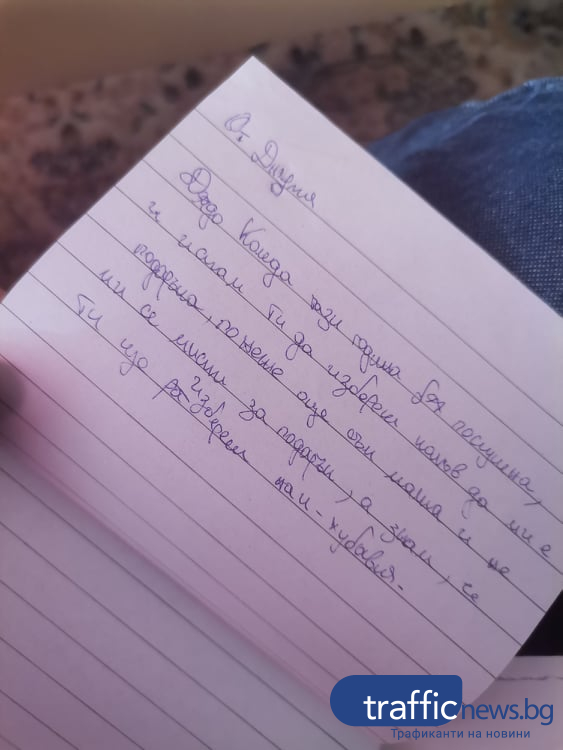 От Дария
Дядо Коледа тази година бях послушна,
и искам Ти да избереш какъв да ми е
подаръка, понеже още съм малка и не
ми се мисли за подарък, а знам, че
Ти ще избереш най-хубавия.
trafficnews.bg
Трафиканти на новини